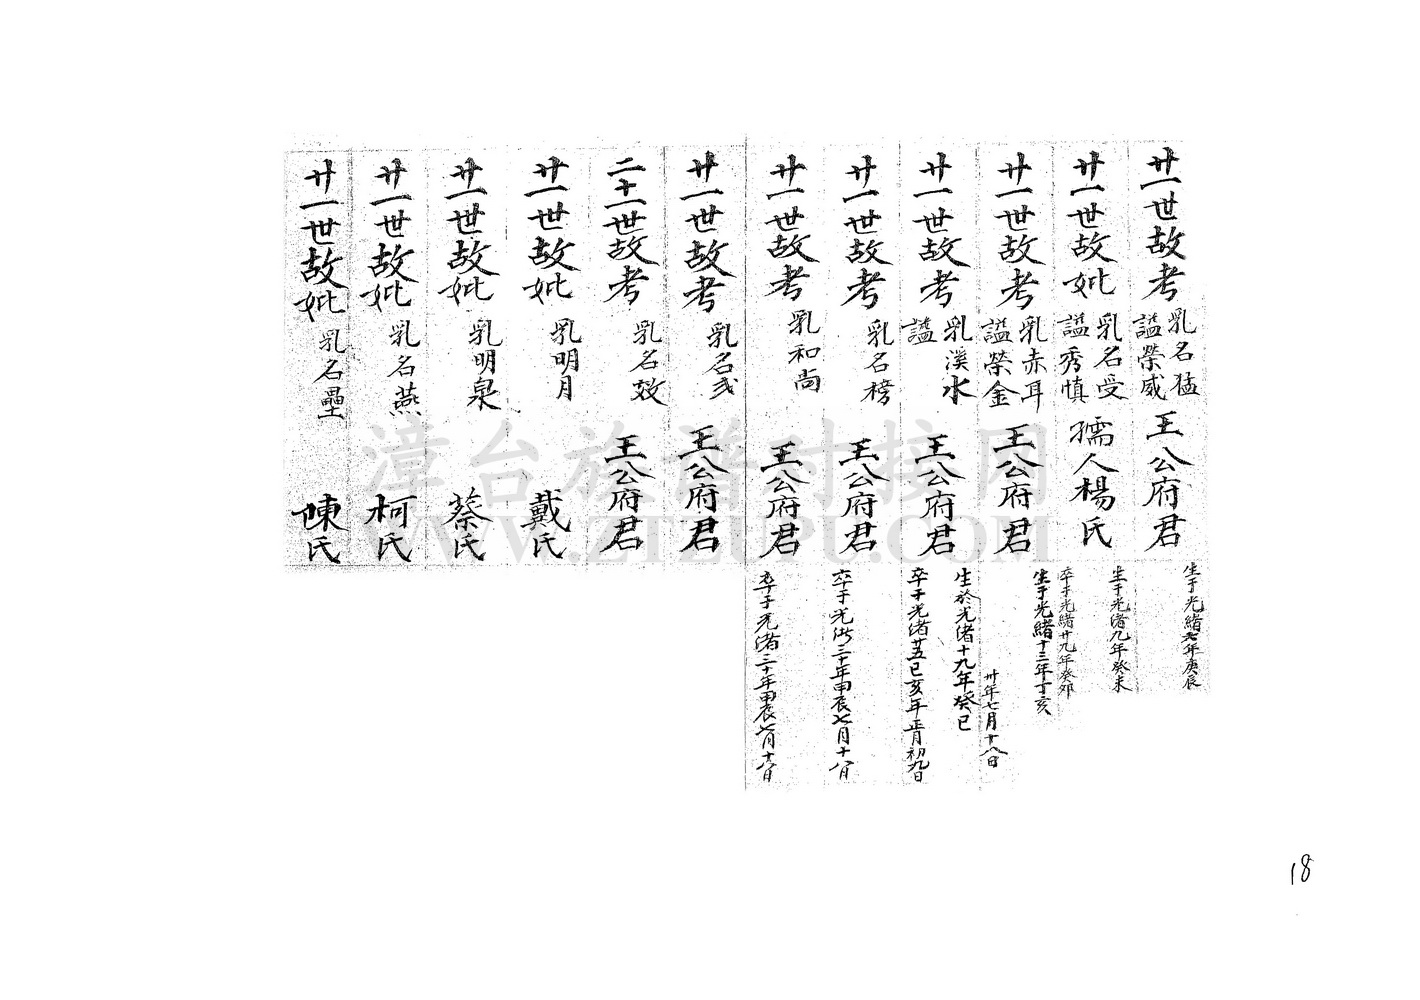 廿一世故考 乳名猛 諡榮威 王公府君 生于光緒七年庚辰
廿一世故妣 乳名受 諡秀慎 孺人楊氏 生于光緒九年癸未 卒于光緒廿九年癸卯
廿一世故考 乳赤耳 諡榮金 王公府君 生于光緒十三年丁亥 卅年七月十八日
廿一世故考 乳漢水 諡 王公府君 生於光緒十九年癸巳 卒于光緒廿五己亥年正月初九日
廿一世故考 乳名榜 王公府君 卒于光緒三十年甲辰七月十八日
廿一世故考 乳和尚 王公府君 卒于光緒三十年甲辰七月十八日
廿一世故考 乳名 王公府君
二十一世故考 乳名效 王公府君
廿一世故妣 乳明月 戴氏
廿一世故妣 乳明泉 蔡氏
廿一世故妣 乳名燕 柯氏
廿一世故妣 乳名壘 陳氏
漳台族谱对接网
WWW.ZTZUPU.COM
18